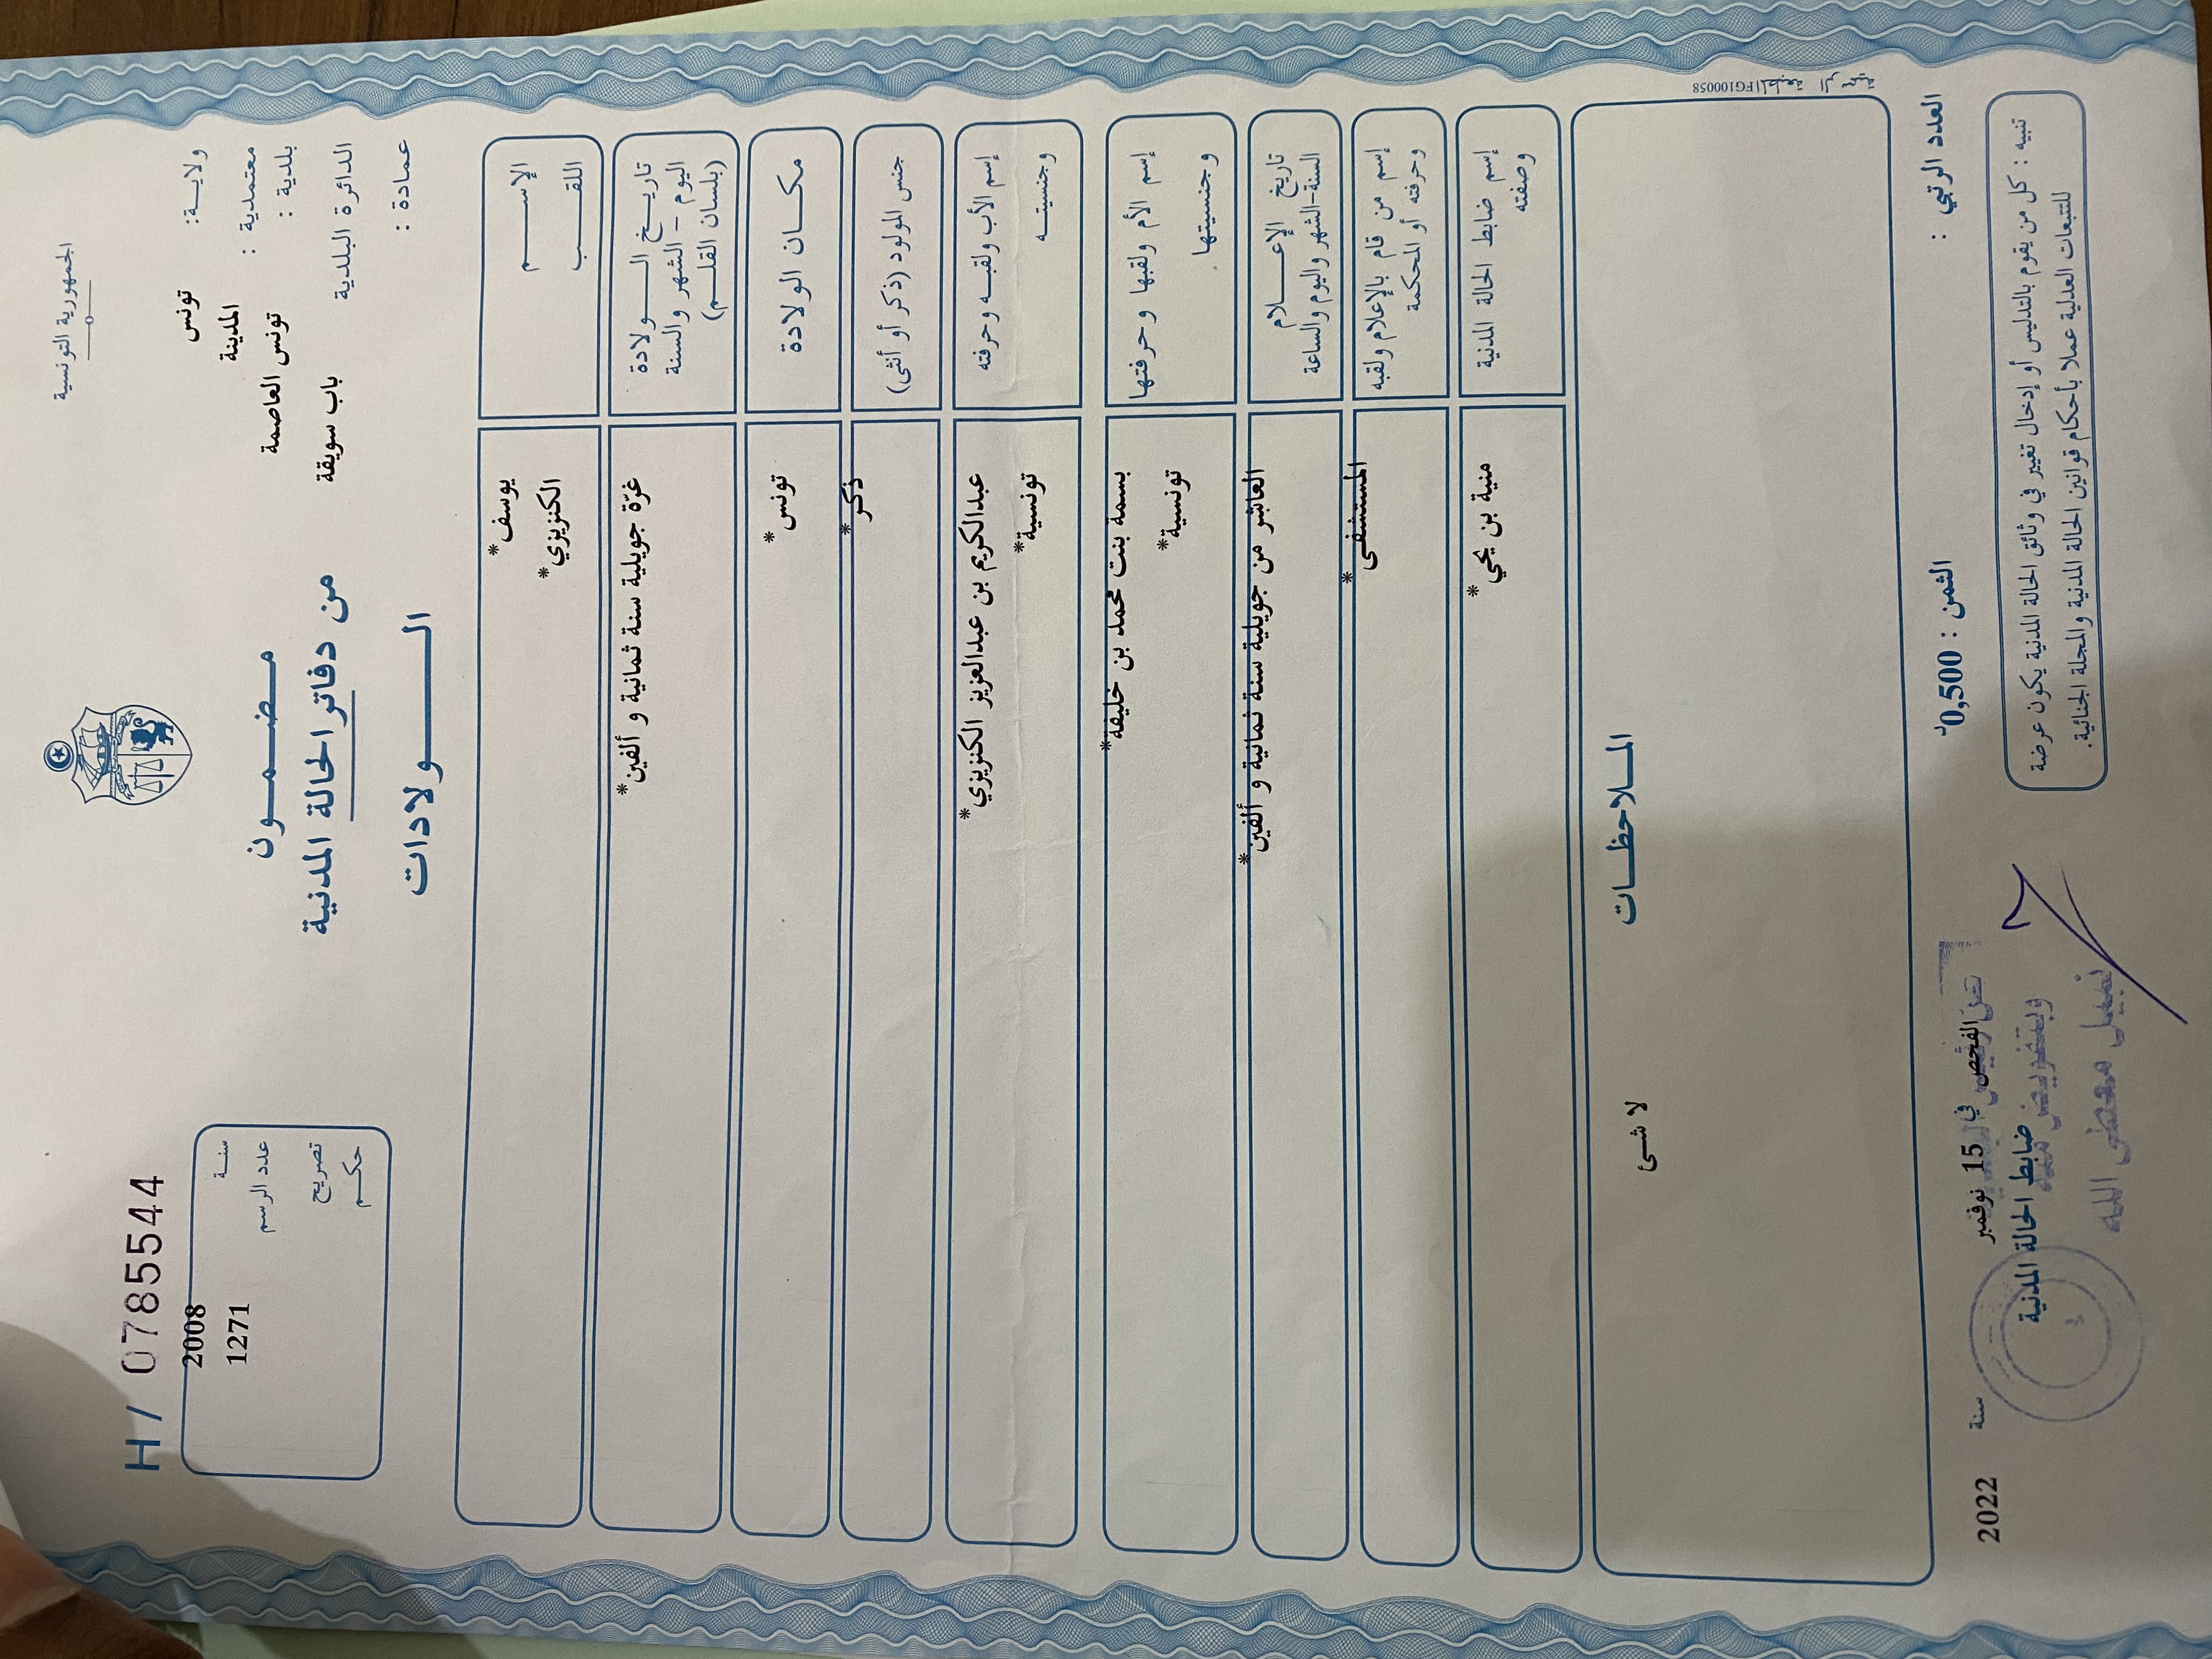 الجمهورية التونسية
H / 0785544
ولاية: تونس
معتمدية : المدينة
بلدية : تونس العاصمة
الدائرة البلدية باب سويقة
عمادة :
مضمون
من دفاتر الحالة المدنية
الولادات
سنة 2008
عدد الرسم 1271
تصريح
حكم
الإسم يوسف*
اللقب الكنزيزي*
تاريخ الولادة
اليوم - الشهر والسنة
(بلسان القلم)
غرّة جويلية سنة ثمانية و ألفين*
مكان الولادة تونس*
جنس المولود (ذكر أو أنثى) ذكر*
إسم الأب ولقبه وحرفته عبدالكريم بن عبدالعزيز الكنزيزي*
وجنسيته تونسية*
إسم الأم ولقبها وحرفتها بسمة بنت محمد بن خليفة*
وجنسيتها تونسية*
تاريخ الإعلام
السنة-الشهر واليوم والساعة
العاشر من جويلية سنة ثمانية و ألفين*
إسم من قام بالإعلام ولقبه
وحرفته أو المحكمة
المستشفى*
إسم ضابط الحالة المدنية
وصفته
منية بن يحي*
الملاحظات
لا شئ
FG100058
العدد الرتبي :
الثمن : 0,500د
في 15 نوفمبر سنة 2022
ضابط الحالة المدنية
وبتفويض منه
نبيل معطى الله
تنبيه : كل من يقوم بالتدليس أو إدخال تغيير في وثائق الحالة المدنية يكون عرضة
للتتبعات العدلية عملا بأحكام قوانين الحالة المدنية والمجلة الجنائية.